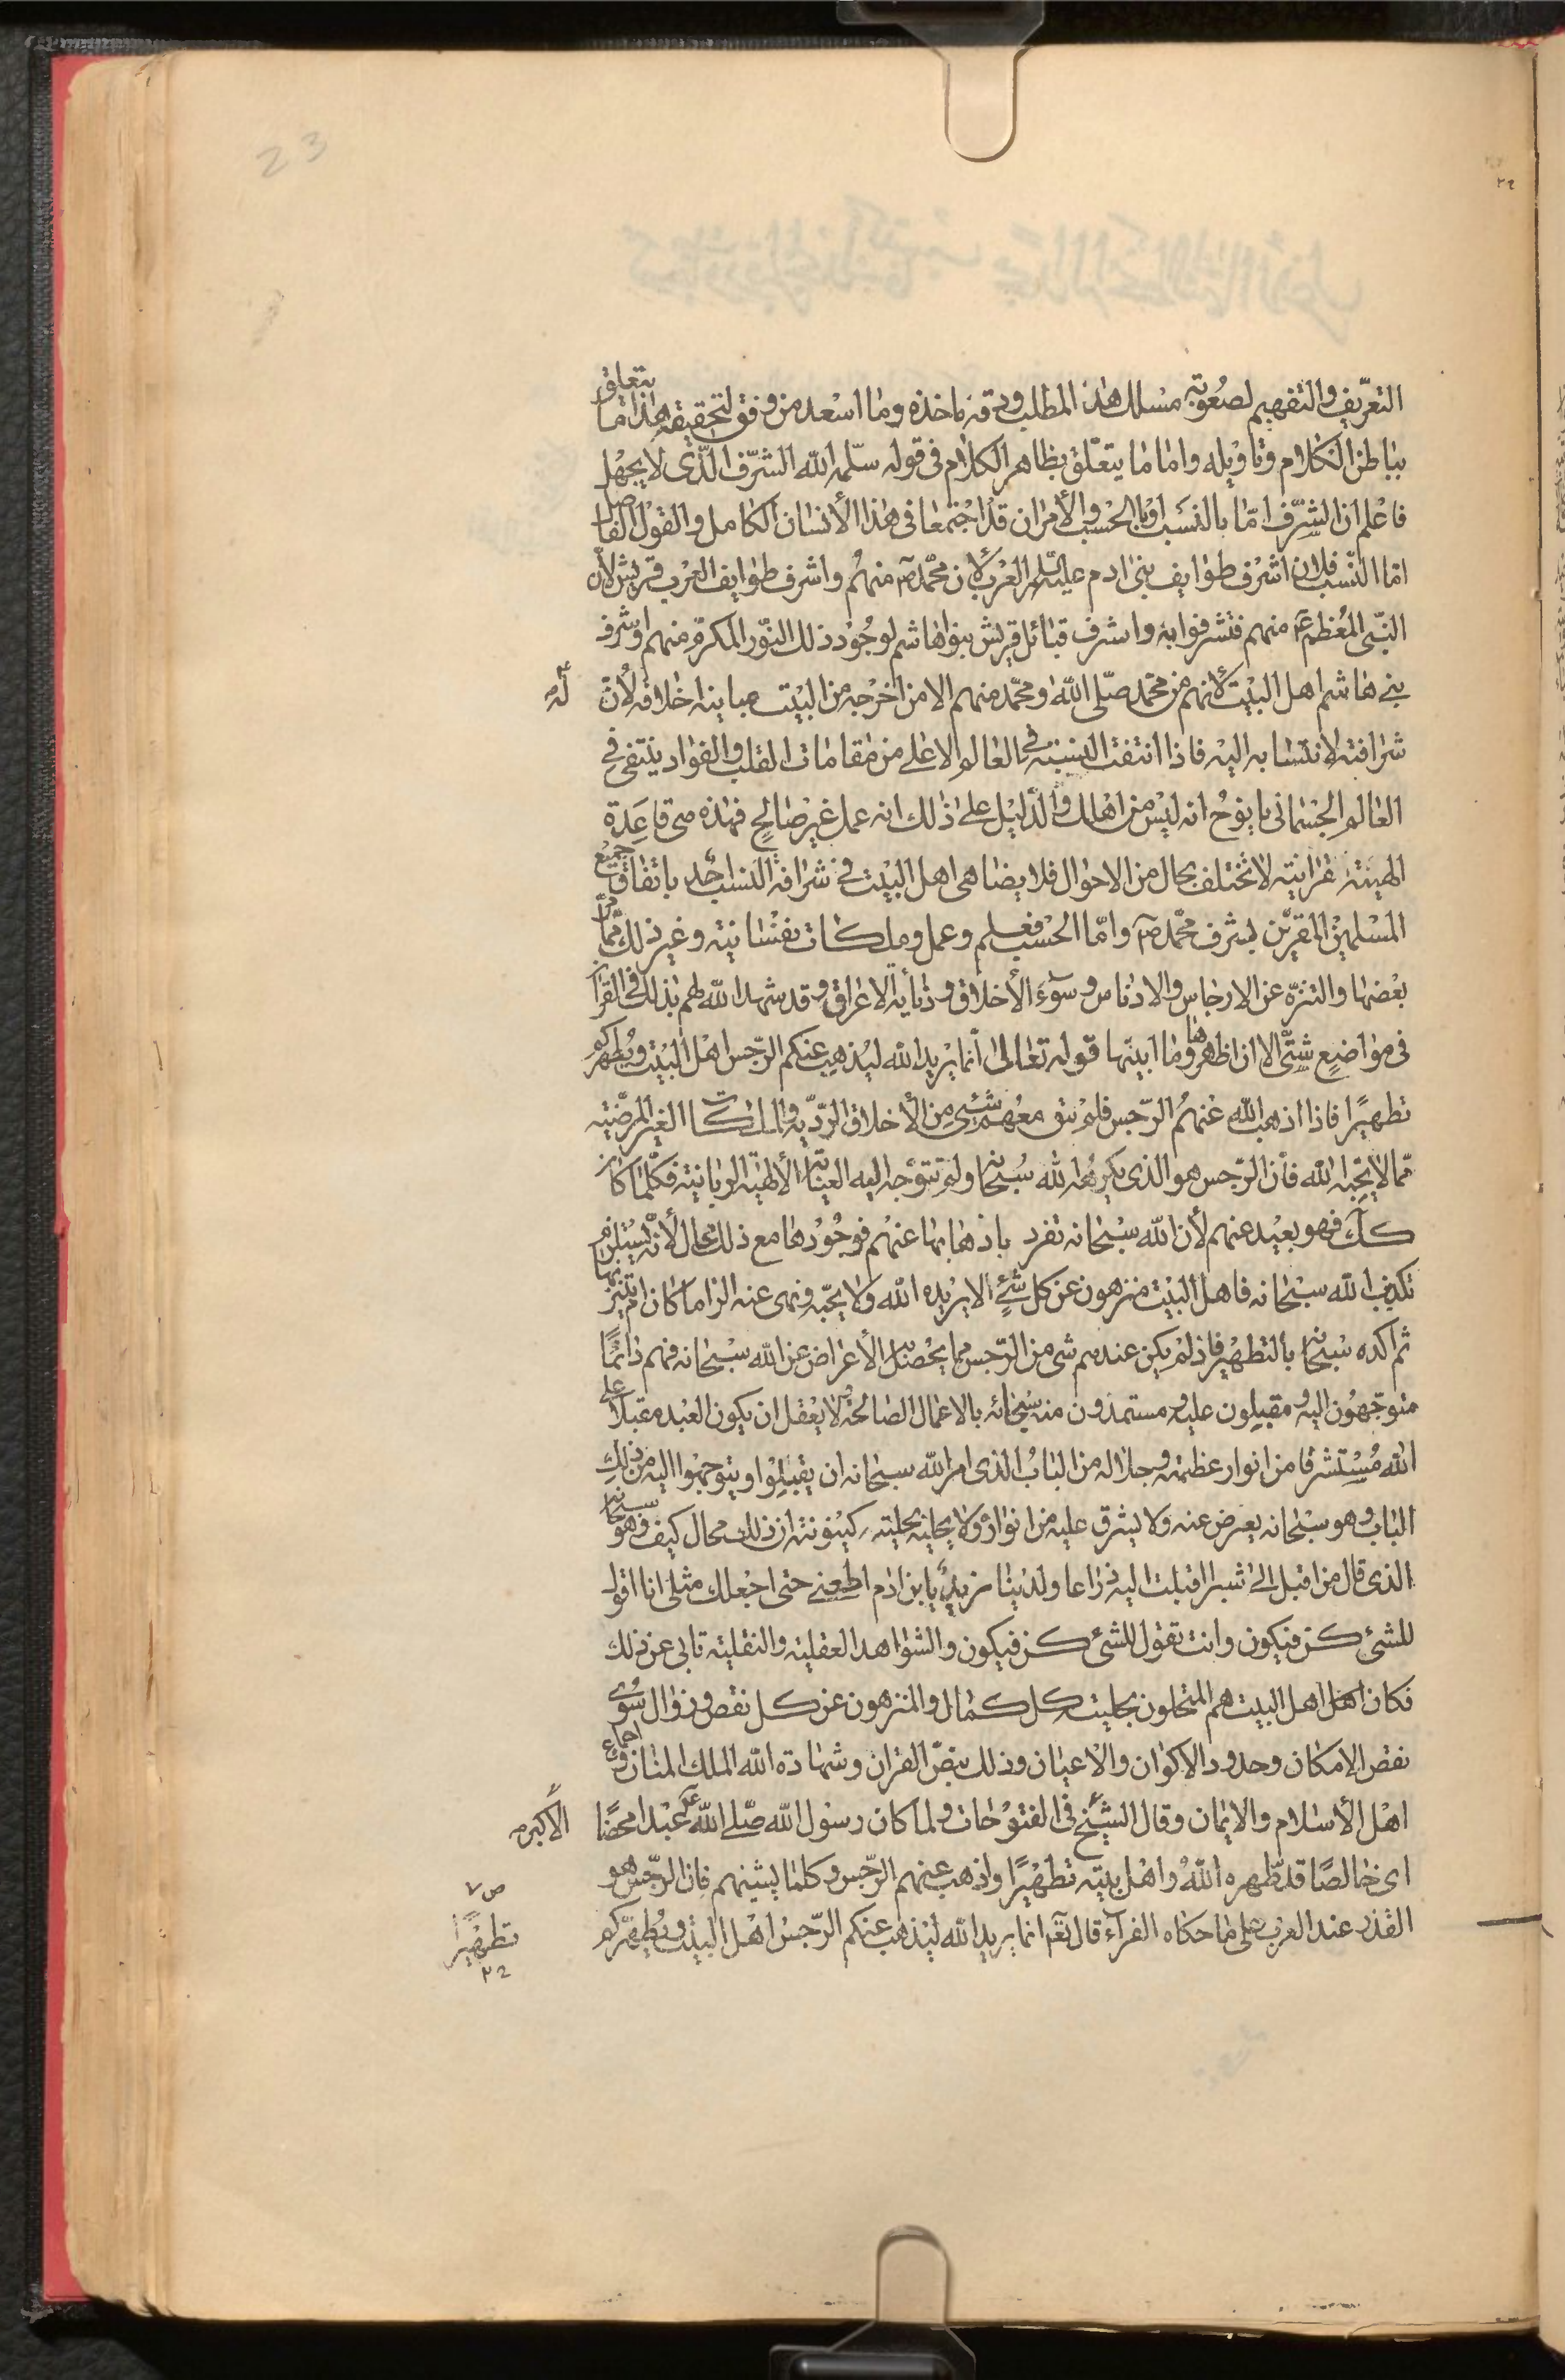 23
التعريف والتفهيم لصعوبة مسلك هذا المطلب ودقة ماخذه وما اسعد من وفق لتحقيقه هذا ما يتعلق
بباطن الكلام وتاويله واما ما يتعلق بظاهر الكلام فى قوله سلمه الله الشرف الذى لا يجهل
فاعلم ان الشرف امّا بالنسب او بالحسب والأمران قد اجتمعا فى هذا الأنسان الكامل والقول الفاصل
امّا النسب فلان اشرف طوايف بنى ادم عليه السلم العرب لأن محمّد ص منهم واشرف طوايف العرب قريش لأن
النبى المعظم ع منهم فتشرفوا به واشرف قبائل قريش بنوا هاشم لوجود ذلك النور المكرم منهم واشرف
بنى هاشم اهل البيت لأنهم من محمّد صلى الله ومحمّد منهم الا من اخرجه من البيت مباينة اخلاقه له لأن
شرافته لانتسابه اليه فاذا انتفت النسبة فى العالم الاعلى من مقامات القلب والفواد ينتفى فى
العالم الجسمانى يا نوح انه ليس من اهلك والدليل على ذلك انه عمل غير صالح فهذه هى قاعدة
الهية قرانية لا تختلف بحال من الاحوال فلا يضاهى اهل البيت فى شرافة النسب احد باتفاق جميع
المسلمين المقرين بشرف محمّد ص وامّا الحسب فعلم وعمل وملكات نفسانية وغير ذلك ممّا مرّ
بعضها والتنزه عن الارجاس والادناس وسوء الأخلاق ودنأية الاعراق وقد شهد الله لهم بذلك فى القران
فى مواضع شتّى الا ان اظهرها وما ابينها قوله تعالى انما يريد الله ليذهب عنكم الرجس اهل البيت ويطهركم
تطهيرًا فاذا اذهب الله عنهم الرجس فلم يبق معهم شئى من الأخلاق الرديه والملكات الغير المرضية
ممّا لا يحبه الله فأن الرجس هو الذى يكرهه الله سبحانه ولم تتوجه اليه العناية الألهية الربانية فكلما كان
كك فهو بعيد عنهم لأن الله سبحانه تفرد باذهابها عنهم فوجودها مع ذلك محال لأنه يستلزم
تكذيب الله سبحانه فاهل البيت منزهون عن كل شئ لا يريده الله ولا يحبه ونهى عنه الزاما كان ام تنزيها
ثم اكده سبحانه بالتطهير فاذ لم يكن عندهم شى من الرجس مما يحصل به الأعراض عن الله سبحانه فهم دائمًا
متوجهون اليه ومقبلون عليه ومستمدون منه سبحانه بالاعمال الصالحة ولا يعقل ان يكون العبد مقبلا على
الله مستشرقا من انوار عظمته وجلاله من الباب الذى امر الله سبحانه ان يقبلوا ويتوجهوا اليه من ذلك
الباب وهو سبحانه يعرض عنه ولا يشرق عليه من انواره ولا يحليه بحلية كينونته ان ذلك محال كيف وهو سبحانه
الذى قال من اقبل الىّ شبرا اقبلت اليه ذراعا ولدينا مزيد يابن ادم اطعنى حتى اجعلك مثلى انا اقول
للشئ كن فيكون وانت تقول للشئ كن فيكون والشواهد العقلية والنقلية تابى عن ذلك
فكان اهل البيت هم المتحلون بحلية كل كمال والمنزهون عن كل نقص وزوال سوى
نقص الامكان وحدود الاكوان والاعيان وذلك بنص القران وشهادة الله الملك المنان واجماع
اهل الأسلام والايمان وقال الشيخ الأكبر فى الفتوحات ولما كان رسول الله صلى الله عليه عبدا محضًا
اى خالصًا قد طهره الله واهل بيته تطهيرًا واذهب عنهم الرجس وكلما يشينهم فان الرجس هو
القذر عند العرب على ما حكاه الفراء قال تعم انما يريد الله ليذهب عنكم الرجس اهل البيت ويطهركم
تطهيرا